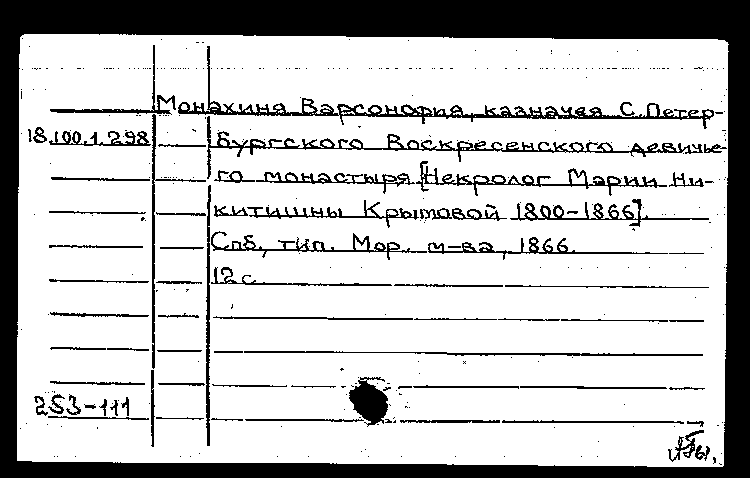 Монахиня Варсонофия, казначея С.Петер-
18.100.1.298
бургского Воскресенского девичье-
го монастыря [Некролог Марии Ни-
китишны Крытовой 1800-1866].
Спб., тип. Мор. м-ва, 1866.
12 с.
253-111